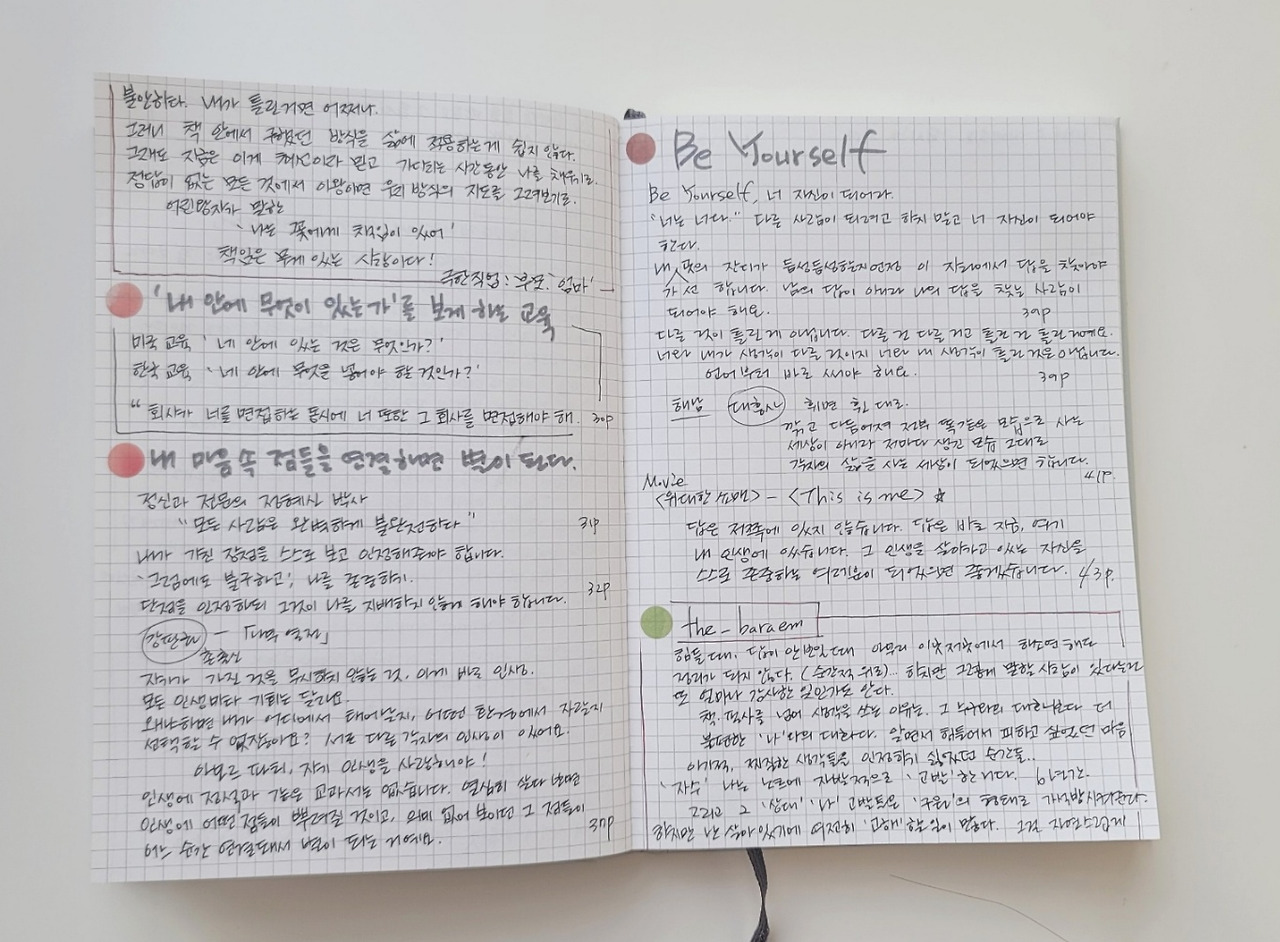 불안하다. 내가 틀린거면 어쩌나.
그러니 책 안에서 구했던 방식을 삶에 적용하는게 쉽지 않다.
그래도 지금은 이게 라 믿고 기다리는 시간동안 나를 채우기로.
정답이 없는 모든 것에서 이왕이면 우리 방식의 지도를 그려보기로.
어린왕자가 말한
'나는 꽃에게 책임이 있어'
책임은 무게 있는 사랑이다!
극한직업 : 부모. '엄마'
'내 안에 무엇이 있는가'를 보게 하는 교육
미국 교육 '네 안에 있는 것은 무엇인가?'
한국 교육 '네 안에 무엇을 넣어야 할 것인가?'
"회사가 너를 면접하는 동시에 너 또한 그 회사를 면접해야 해. 30p
내 마음속 점들을 연결하면 별이 된다.
정신과 전문의 정혜신 박사
"모든 사람은 완벽하게 불완전하다" 31p
내가 가진 장점을 스스로 보고 인정해줘야 합니다.
'그럼에도 불구하고', 나를 존중하기.
단점을 인정하되 그것이 나를 지배하지 않게 해야 합니다. 32p
강판권 - 「나무 열전」
자기가 가진 것을 무시하지 않는 것, 이게 바로 인생.
모든 인생마다 기회는 달라요.
왜냐하면 내가 어디에서 태어날지, 어떤 환경에서 자랄지
선택할 수 없잖아요? 서로 다른 각자의 인생이 있어요.
아모르 파티, 자기 인생을 사랑해야!
인생에 정석과 같은 교과서는 없습니다. 열심히 살다 보면
인생에 어떤 점들이 뿌려질 것이고, 의미 없어 보이던 그 점들이
어느 순간 연결돼서 별이 되는 거예요. 37p
Be Yourself
Be Yourself, 너 자신이 되어라.
"너는 너다." 다른 사람이 되려고 하지 말고 너 자신이 되어야
한다.
내 팟의 잔디가 듬성듬성할지언정 이 자리에서 답을 찾아야
가 선 합니다. 남의 답이 아니라 나의 답을 찾는 사람이
되어야 해요. 39p
다른 것이 틀린 게 아닙니다. 다른 건 다른 거고 틀린 건 틀린 거예요.
너와 내가 생각이 다른 것이지 너와 내 생각이 틀린 것은 아닙니다.
언어부터 바로 써야 해요. 39p
해남 대흥사 휘면 휜 대로.
깎고 다듬어져 전부 똑같은 모습으로 사는
세상이 아니라 저마다 생긴 모습 그대로
각자의 삶을 사는 세상이 되었으면 합니다. 41p.
Movie
<위대한 쇼맨> - <This is me> ☆
답은 저쪽에 있지 않습니다. 답은 바로 지금, 여기
내 인생에 있습니다. 그 인생을 살아가고 있는 자신을
스스로 존중하는 여러분이 되었으면 좋겠습니다. 43p.
the_baraem
힘들 때, 답이 안 보일 때 아무리 이곳저곳에서 하소연 해도
정리가 되지 않는다. (순간적 위로)... 하지만 그렇게 말할 사람이 있다는 건
또 얼마나 감사한 일인가도 안다.
책. 필사를 넘어 생각을 쓰는 이유는. 그 누구와의 대화보다 더
불편한 '나'와의 대화다. 알면서 한 피하고 싶었던 마음
이기적, 찌질한 생각들을 인정하기 싫었던 순간들..
'자수' 나는 노트에 자발적으로 '고발'한다. 6년간.
그리고 그 '상대' '나' 고발들은 '구원'의 형태로
하지만 난 살아있기에 여전히 '고해'할 일이 많다. 그걸 자연스럽게